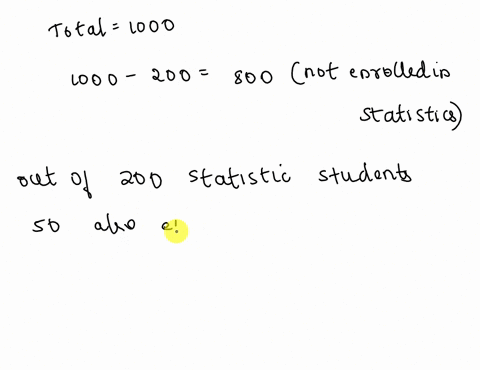 Total = 1000
1000 - 200 = 800 (not enrolled in
statistics)
out of 200 statistic students
50 also e